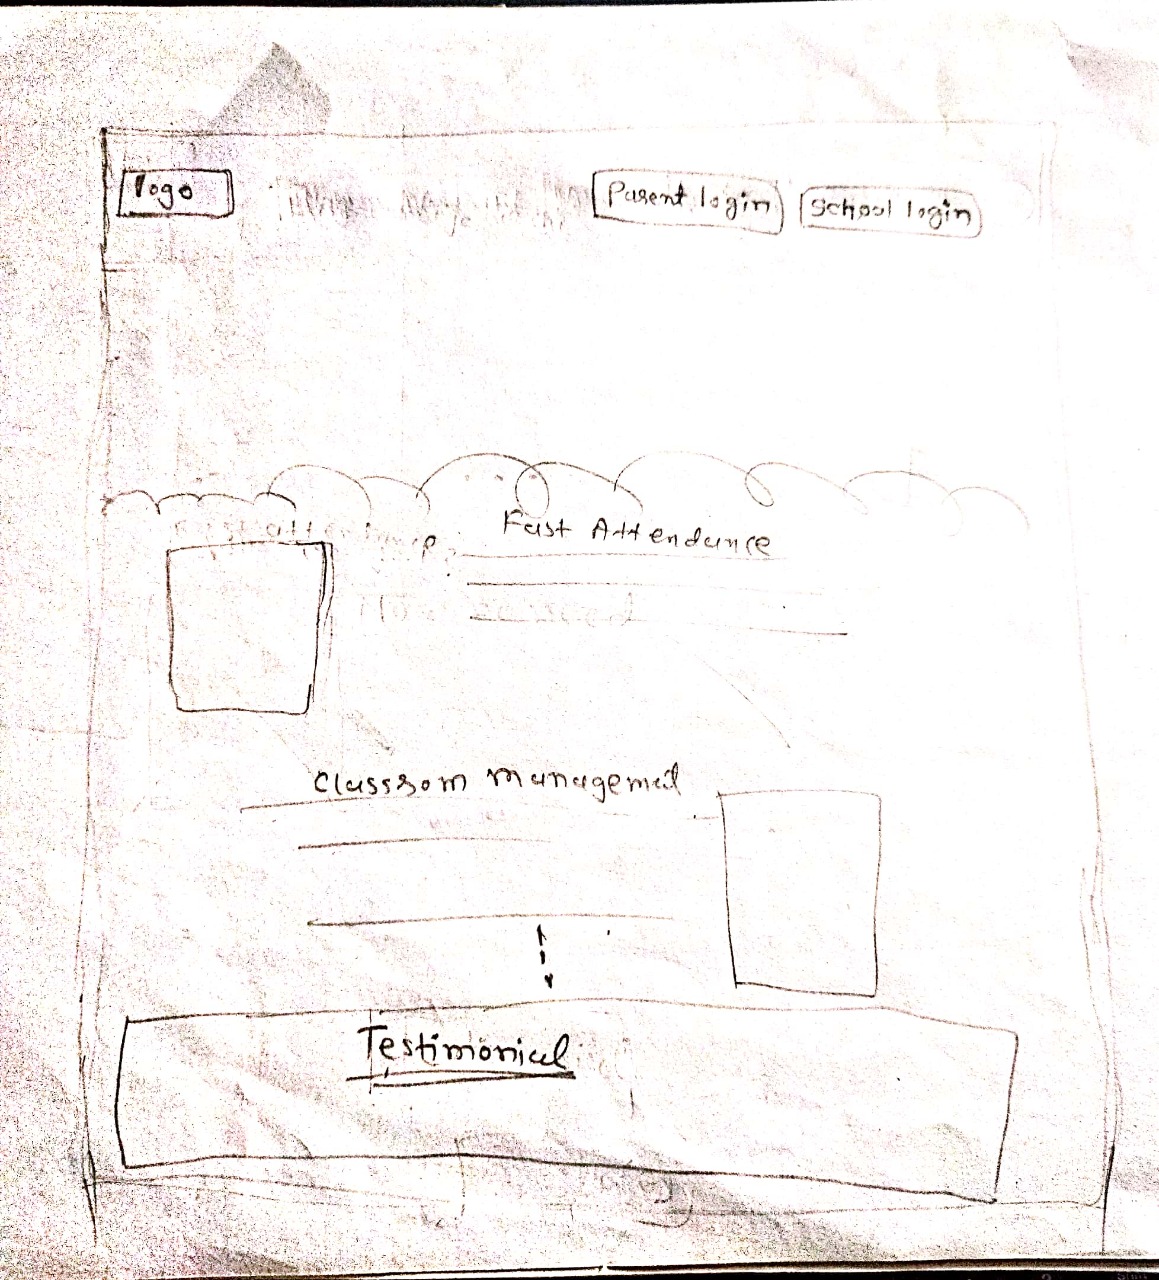 logo
Parent login
School login
Fast Attendance
Classrom managemet
Testimonial